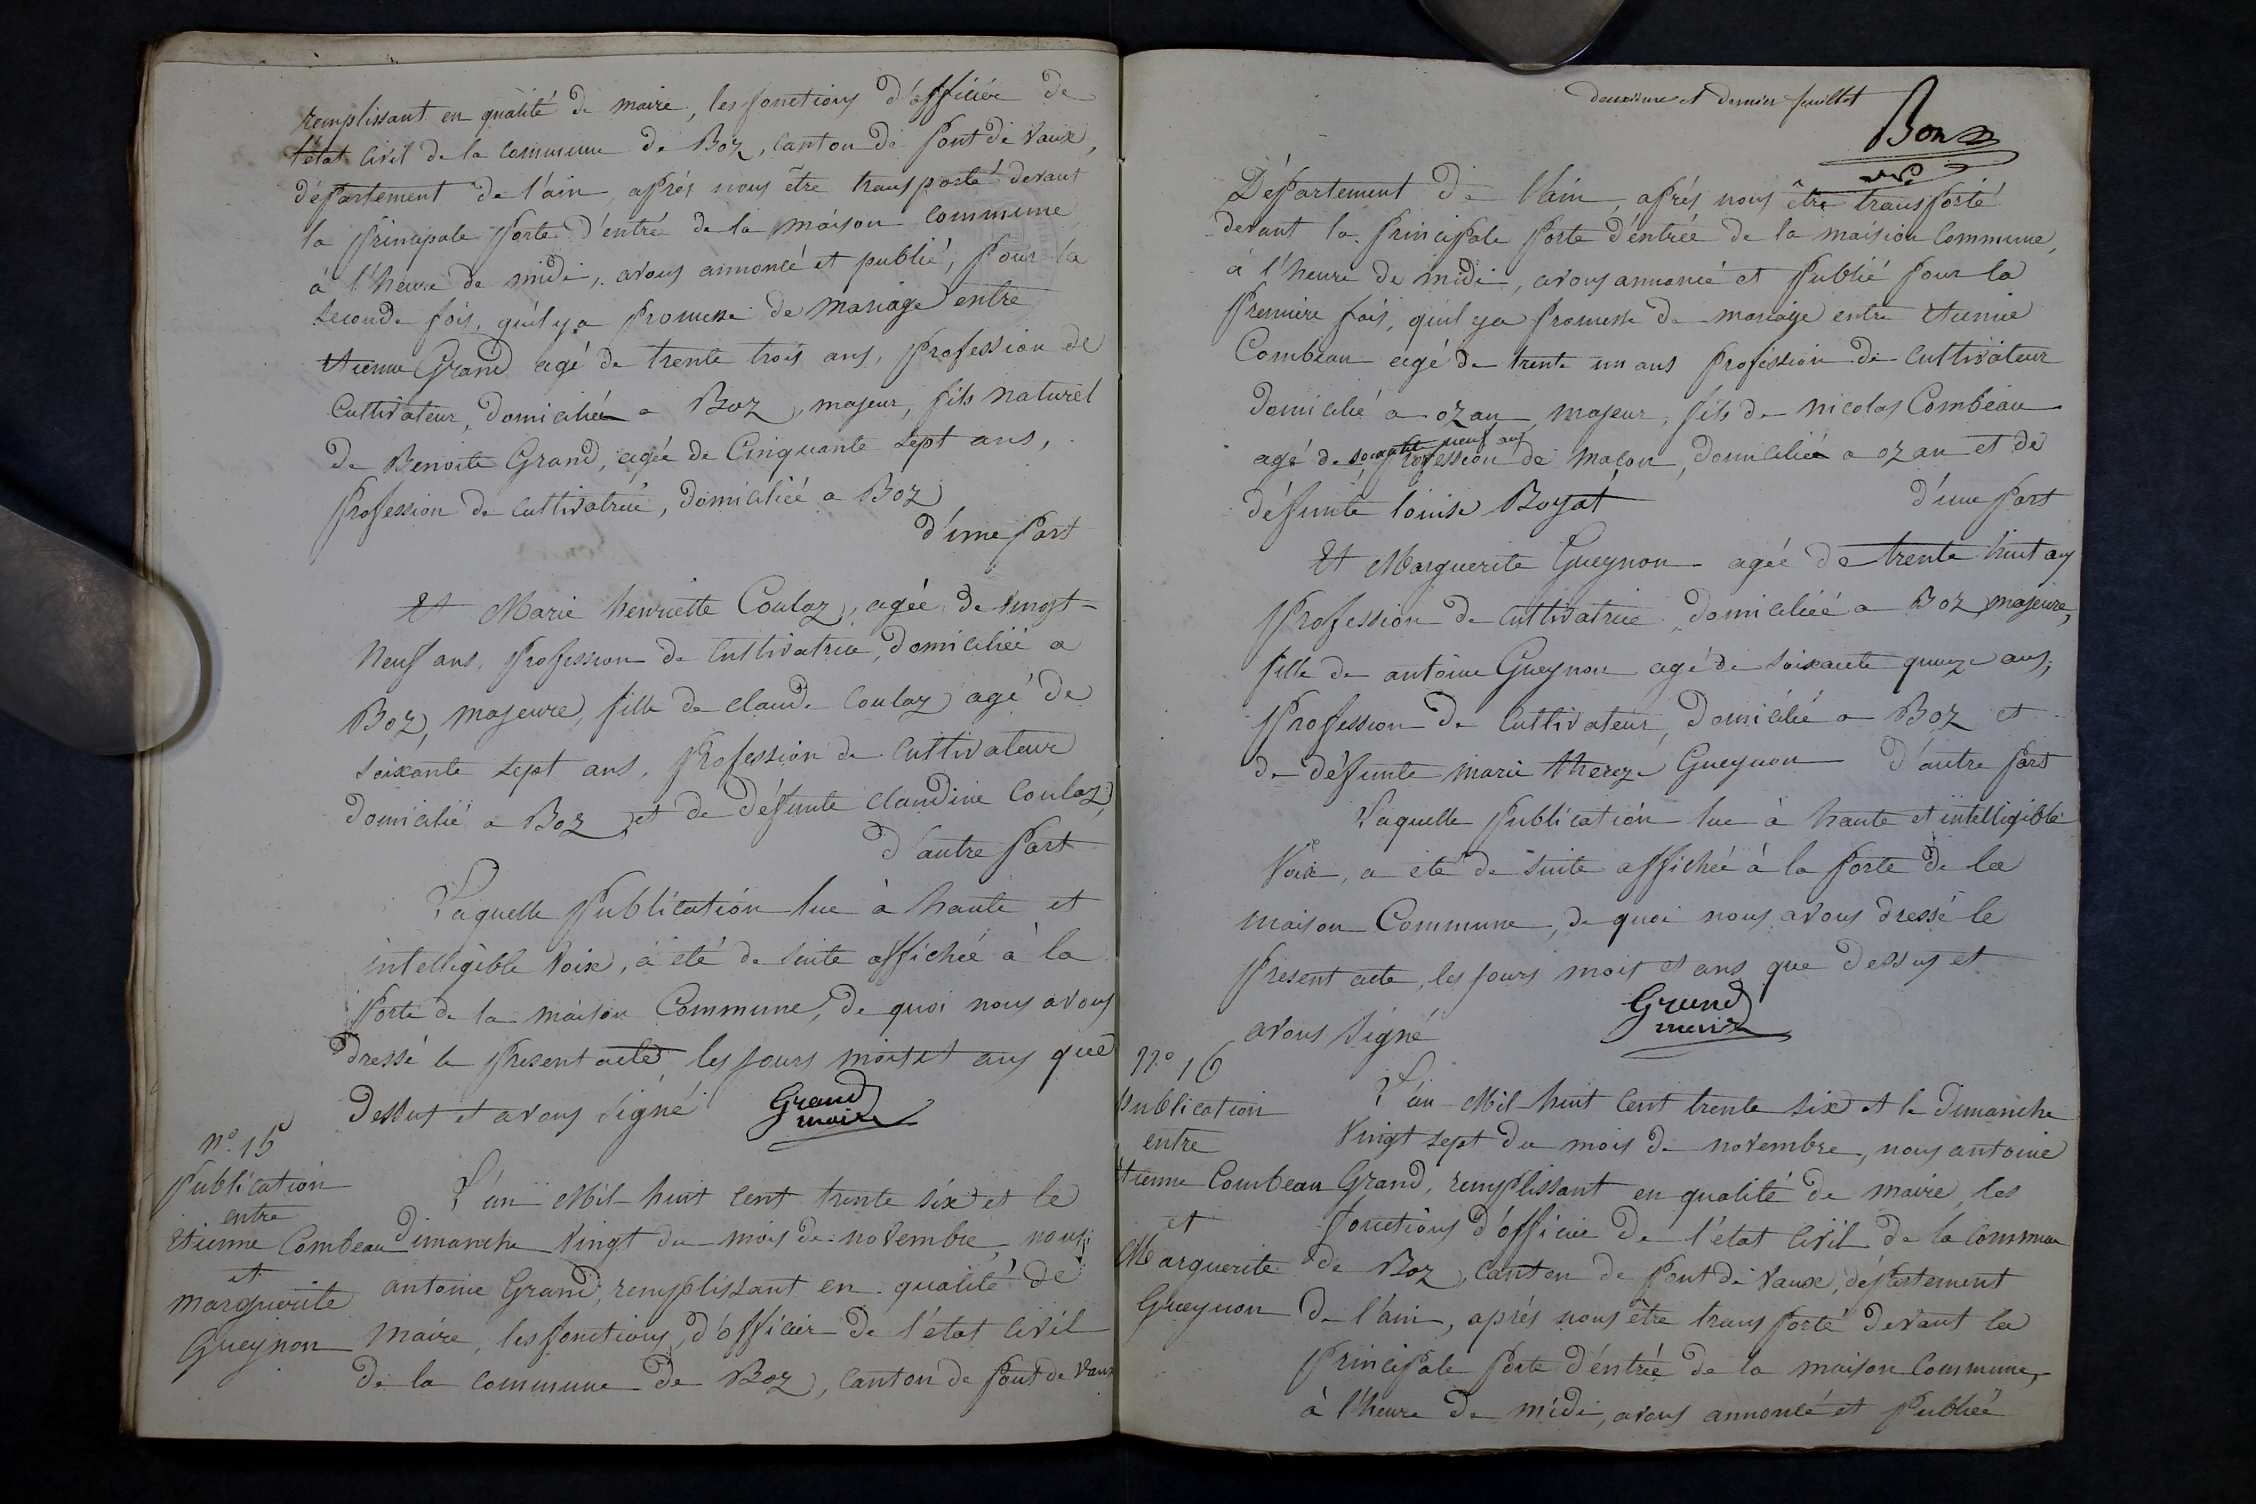 remplissant en qualité de maire, les fonctions d'officier de
l'état civil de la commune de Boz, canton de Pont de Vaux,
département de l'ain, aprés nous être transporté devant
la principale porte d'entrée de la maison commune
à l'heure de midi, avons annoncé et publié, pour la
seconde fois, qu'il y a promesse de mariage entre
etienne Grand agé de trente trois ans, profession de
Cultivateur, domicilié a Boz, majeur, fils naturel
de Benoite Grand, agée de Cinquante sept ans,
profession de cultivatrice, domiciliée a Boz
d'une part
Et Marie henriette Coulaz, agée de vingt-
neuf ans, profession de Cultivatrice, domiciliée a
Boz, majeure, fille de claude Coulaz agé de
soixante sept ans, profession de cultivateur
domicilié a Boz et de défunte Claudine Coulaz,
d'autre part
Laquelle publication lue à haute et
intelligible voix, à été de suite affichée à la
porte de la maison Commune, de quoi nous avons
dressé le present acte, les jours mois et ans que
dessus et avons signé Grand
maire
n.o 15
Publication
entre
etienne Combeau
et
marguerite
Gueynon
L'an Mil huit cent trente six et le
Dimanche vingt du mois de novembre, nous
antoine Grand, remplissant en qualité de
maire, les fonctions, d'officier de l'état civil
de la commune de Boz, canton de pont de vaux
deuxième et dernier feuillet
Bon
Département de l'ain, aprés nous être transporté
devant la principale porte d'entrée de la maision commune,
à l'heure de midi, avons annoncé et publié pour la
premiere fois, qu'il ya promesse de mariage entre etienne
Combeau agé de trente un ans profession de cultivateur
domicilié a ozan majeur, fils de nicolas Combeau
agé de soixante neuf ans profession de maçon, domicilié a ozan et de
défunte louise Boyat d'une part
Et Marguerite Gueynon agée de trente huit ans
profession de cultivatrice domiciliée a Boz, majeure,
fille de antoine Gueynon agé de soixante quinze ans,
profession de Cultivateur, domicilié a Boz et
de défunte marie thereze Gueynon d'autre part
Laquelle publication lue à haute et intelligible
voix, a été de suite affichée à la porte de la
maison Commune, de quoi nous avons dressé le
present acte, les jours mois et ans que dessus et
avons signé Grand
maire
N.o 16
Publication
entre
etienne Combeau
et
Marguerite
Gueynon
L'an Mil huit cent trente six et le dimanche
vingt sept du mois de novembre, nous antoine
Grand, remplissant en qualité de maire, les
fonctions d'officier de l'état civil de la commune
de Boz, canton de pont de vaux, département
de l'ain, aprés nous être transporté devant la
principale porte d'entrée de la maison commune,
à l'heure de midi, avons annoncé et publiée